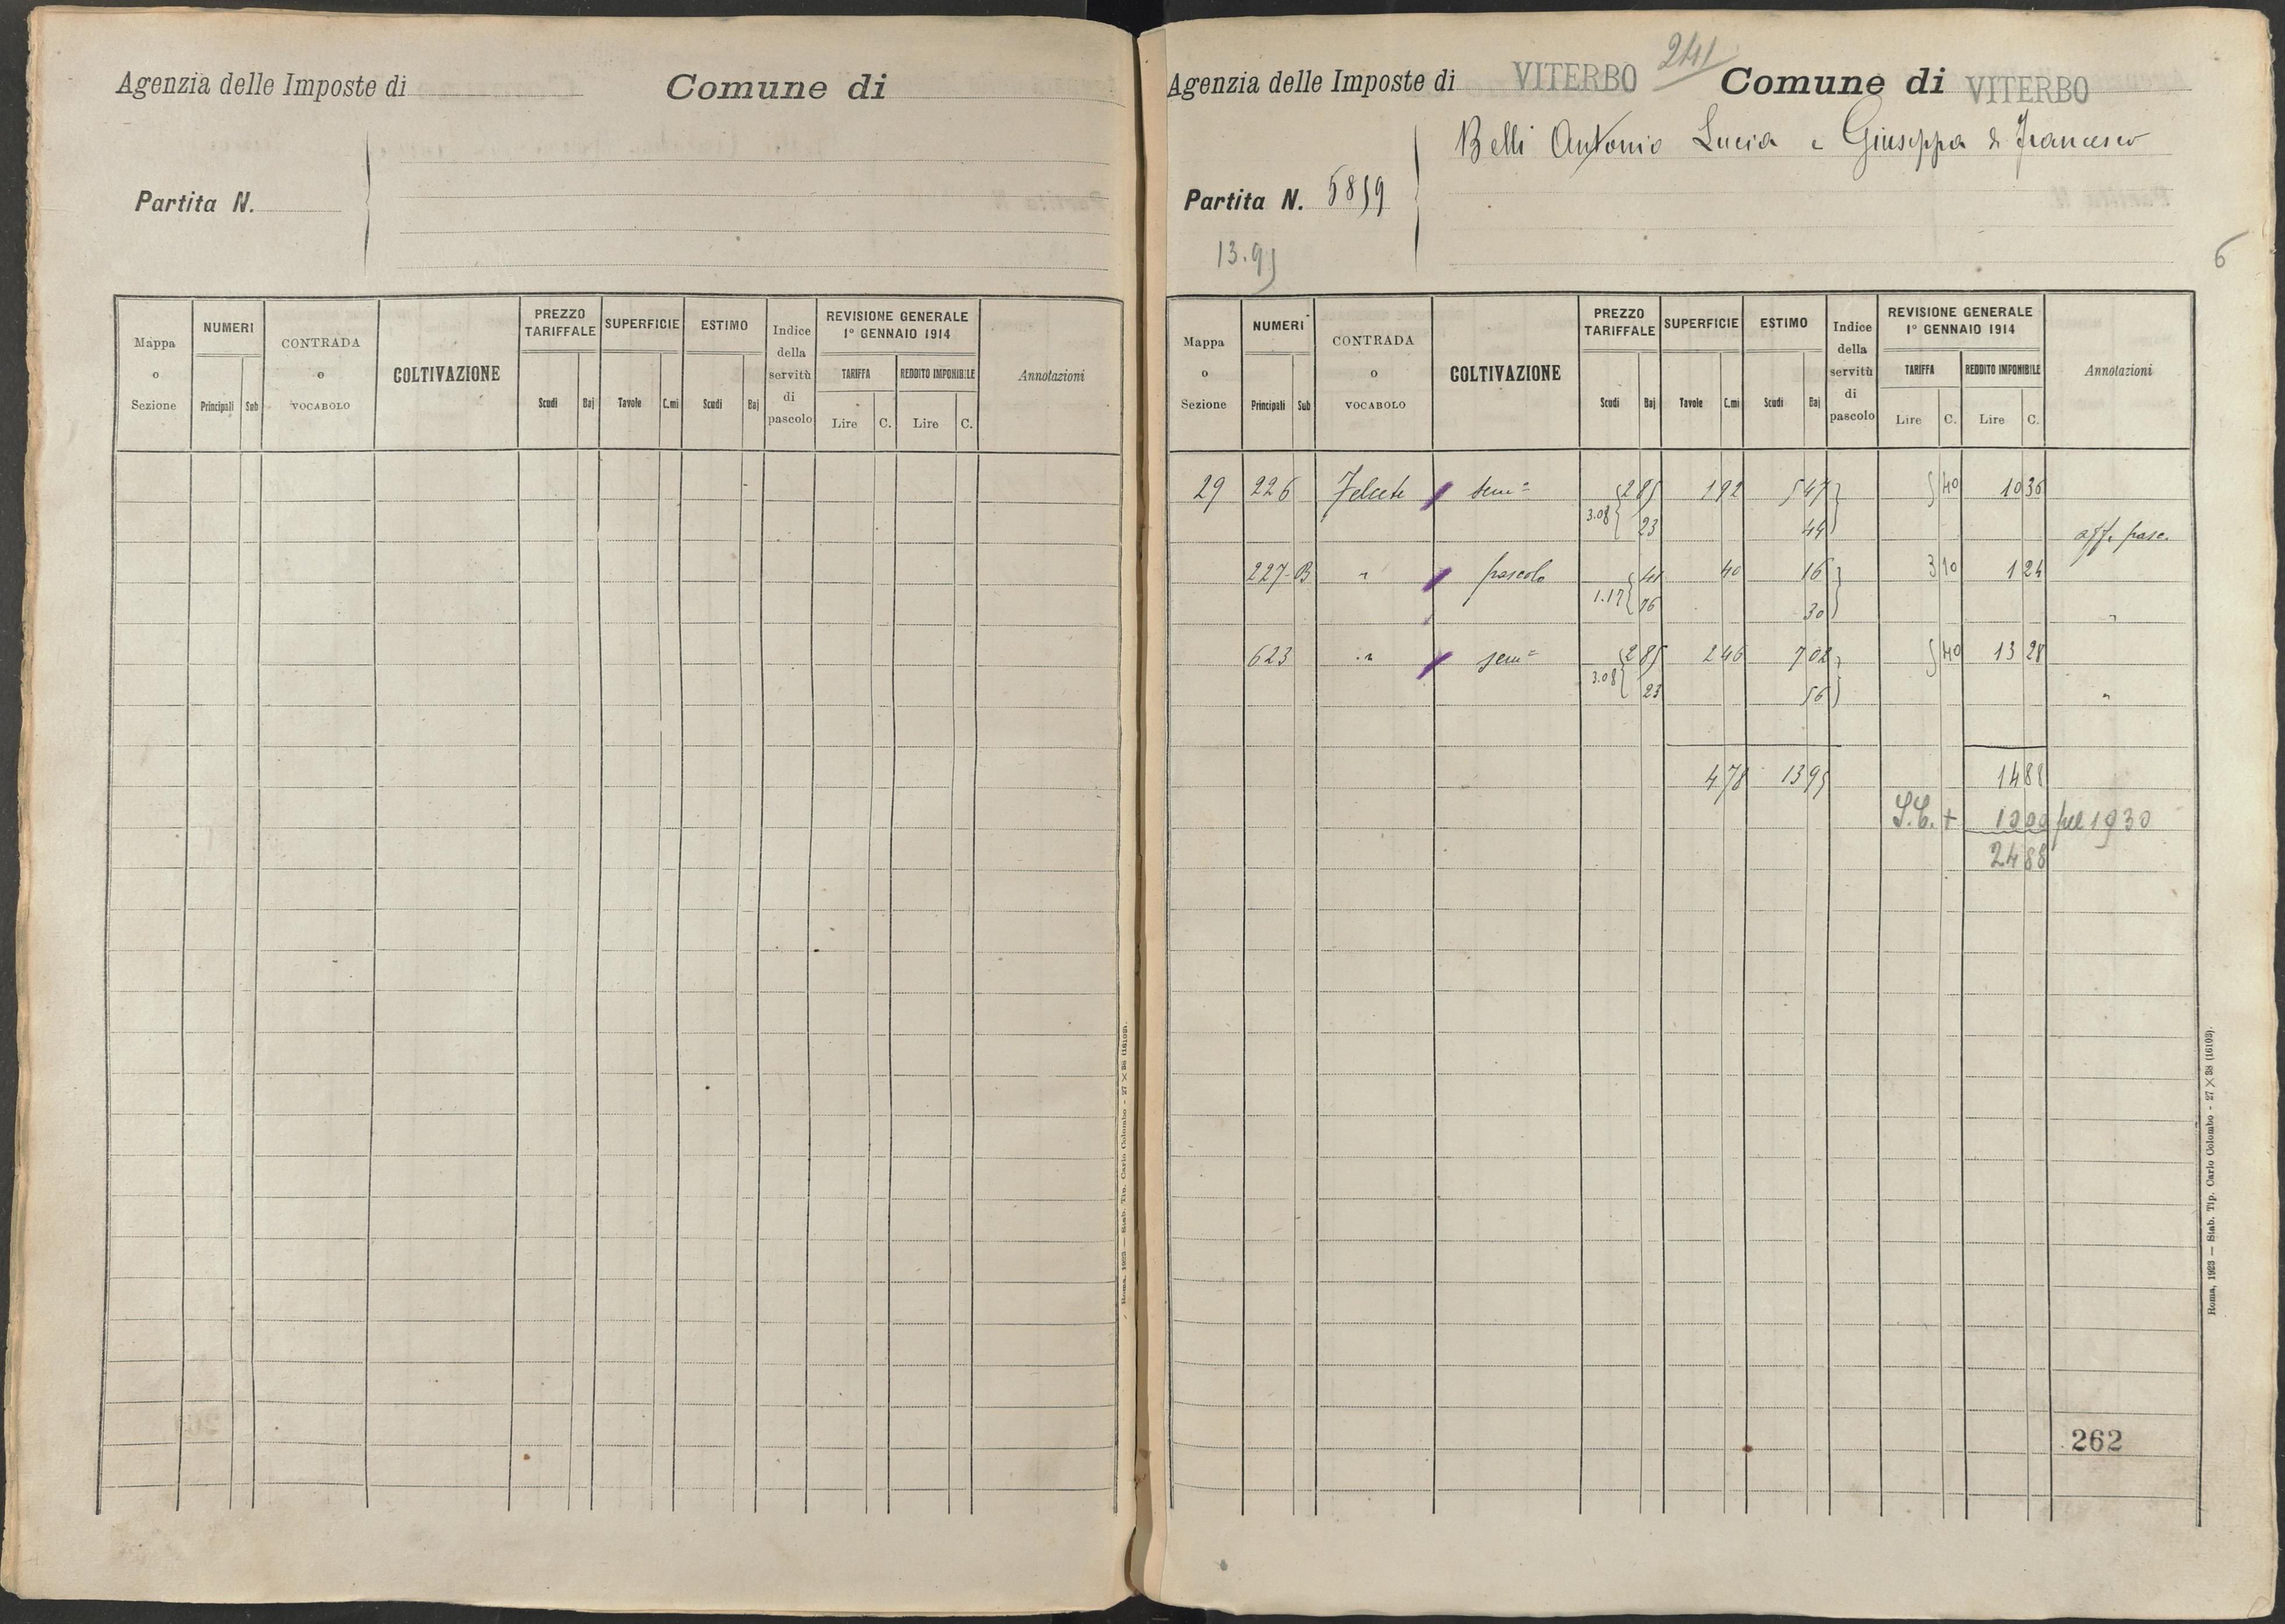 Agenzia delle Imposte di Comune di
Partita N.
Mappa o Sezione NUMERI Principali Sub CONTRADA o VOCABOLO COLTIVAZIONE PREZZO TARIFFALE Scudi Baj SUPERFICIE Tavole C.mi ESTIMO Scudi Baj Indice della servitù di pascolo REVISIONE GENERALE 1° GENNAIO 1914 TARIFFA Lire C. REDDITO IMPONIBILE Lire C. Annotazioni
Roma, 1923 — Stab. Tip. Carlo Colombo - 27 × 38 (16103).
241
Agenzia delle Imposte di VITERBO Comune di VITERBO
Belli Antonio Lucia e Giuseppa di Francesco
Partita N. 5859
13.95
6
Mappa o Sezione NUMERI Principali Sub CONTRADA o VOCABOLO COLTIVAZIONE PREZZO TARIFFALE Scudi Baj SUPERFICIE Tavole C.mi ESTIMO Scudi Baj Indice della servitù di pascolo REVISIONE GENERALE 1° GENNAIO 1914 TARIFFA Lire C. REDDITO IMPONIBILE Lire C. Annotazioni
29 226 semo 2 85 1 92 5 47 5 40 10 36
3.08 23 44 aff. pasc.
227 B " pascolo 41 40 16 3 10 1 24
1.17 76 30 "
623 " semo 2 85 2 46 7 02 5 40 13 28
3.08 23 56 "
4 78 13 95 14 88
S.C. + 10 00 pel 1930
24 88
262
Roma, 1923 — Stab. Tip. Carlo Colombo - 27 × 38 (16103).